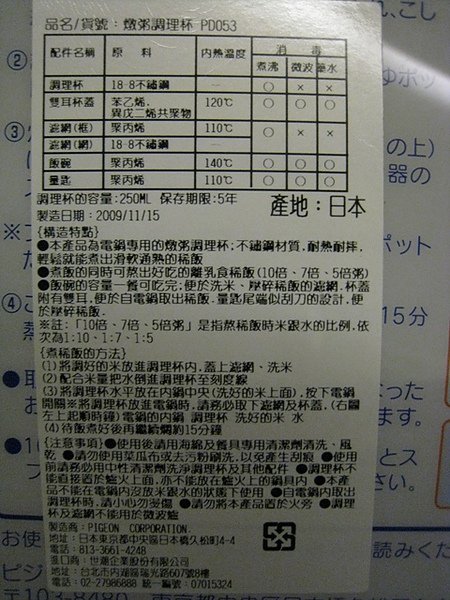 品名/貨號：燉粥調理杯 PD053
配件名稱 原料 內熱溫度 消毒
煮沸 微波 藥水
調理杯 18-8不鏽鋼 — ○ × ×
雙耳杯蓋 苯乙烯.異戊二烯共聚物 120℃ ○ ○ ○
濾網(框) 聚丙烯 110℃ ○ × ×
濾網(網) 18-8不鏽鋼 —
飯碗 聚丙烯 140℃ ○ ○ ○
量匙 聚丙烯 110℃ ○ ○ ○
調理杯的容量:250ML 保存期限:5年
製造日期：2009/11/15
產地：日本
{構造特點}
●本產品為電鍋專用的燉粥調理杯;不鏽鋼材質,耐熱耐摔,
輕鬆就能煮出滑軟適熟的稀飯
●煮飯的同時可熬出好吃的離乳食稀飯(10倍、7倍、5倍粥)
●飯碗的容量一餐可吃完;便於洗米、壓碎稀飯的濾網,杯蓋
附有雙耳,便於自電鍋取出稀飯.量匙尾端似刮刀的設計,便
於壓碎稀飯.
※註:「10倍、7倍、5倍粥」是指熬稀飯時米跟水的比例.依
次為1:10、1:7、1:5
{煮稀飯的方法}
(1)將好的米放進調理杯內,蓋上濾網、洗米
(2)配合米量把水倒進調理杯至刻度線
(3)將調理杯水平放在內鍋中央(洗好的米上面),按下電鍋
開關※將調理杯放進電鍋時,請務必取下濾網及杯蓋.(右圖
左上起順時鐘)電鍋的內鍋 調理杯 洗好的米 水
(4)待飯煮好後再繼續燜約15分鐘
{注意事項}●使用後請用海綿及餐具專用清潔劑清洗、風
乾 ●請勿使用菜瓜布或去污粉刷洗,以免產生刮痕 ●使用
前請務必用中性清潔劑洗淨調理杯及其他配件 ●調理杯不
能直接置於爐火上面,亦不能放在爐火上的鍋具內 ●本產
品不能在電鍋內沒放米跟水的狀態下使用 ●自電鍋內取出
調理杯時,請小心勿燙傷 ●請勿將本產品置於火旁 ●調理
杯及濾網不能用於微波爐
製造商：PIGEON CORPORATION.
地址：日本東京都中央區日本橋久松町4-4
電話：813-3661-4248
進口商：世潮企業股份有限公司
地址：台北市內湖區瑞光路607號8樓
電話：02-27986888 統一編號：07015324
②
③
の上)
器の
※
ポット
④
15分
ます。
とス
さい。
お使
読みくだ